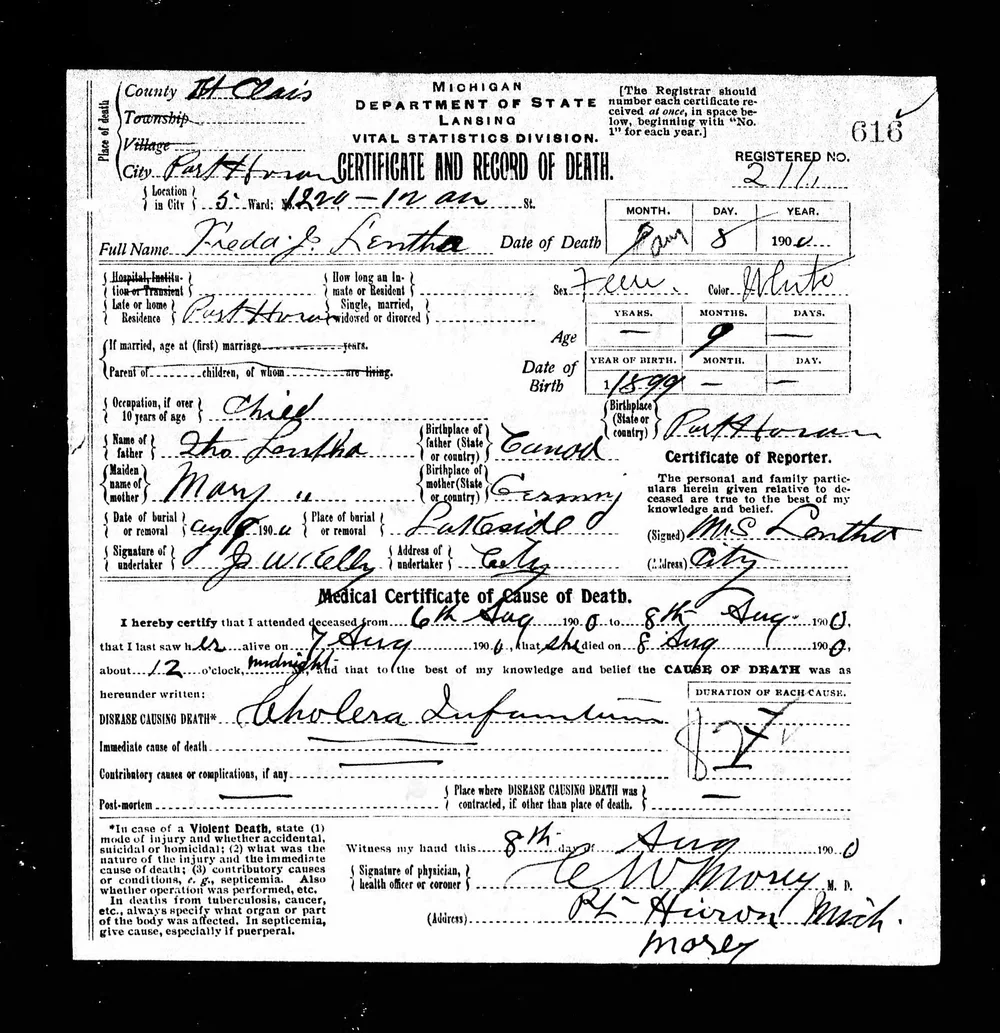 Place of death
County St Clair
MICHIGAN
DEPARTMENT OF STATE
LANSING
VITAL STATISTICS DIVISION.
[The Registrar should
number each certificate re-
ceived at once, in space be-
low, beginning with "No.
1" for each year.]
616
Township
Village
City Port Huron
CERTIFICATE AND RECORD OF DEATH.
REGISTERED NO.
211
Location in City 5 Ward; No. 1220-12 av St.
Full Name Freda J. Lentha Date of Death
MONTH. DAY. YEAR.
Aug 8 1900
Hospital, Institu-
tion or Transient
How long an In-
mate or Resident
Sex Fem. Color White
Late or home
Residence Port Huron
Single, married,
widowed or divorced
Age
YEARS. MONTHS. DAYS.
— 9 —
If married, age at (first) marriage years.
Parent of children, of whom are living.
Date of
Birth
YEAR OF BIRTH. MONTH. DAY.
1899 — —
Occupation, if over
10 years of age Child
Birthplace
(State or
country) Port Huron
Name of
father Lentha
Birthplace of
father (State
or country) Canad
Maiden
name of
mother Mary "
Birthplace of
mother (State
or country) Germny
Certificate of Reporter.
The personal and family partic-
ulars herein given relative to de-
ceased are true to the best of my
knowledge and belief.
Date of burial
or removal aug 8 1900
Place of burial
or removal Lakeside
(Signed) Mrs Lentha
Signature of
undertaker J W Kelly
Address of
undertaker City
(Address) City
Medical Certificate of Cause of Death.
I hereby certify that I attended deceased from 6th Aug 1900 to 8th Aug. 1900,
that I last saw her alive on 7 Aug 1900, that she died on 8 Aug 1900,
about 12 o'clock, midnight, and that to the best of my knowledge and belief the CAUSE OF DEATH was as
hereunder written:
DURATION OF EACH CAUSE.
DISEASE CAUSING DEATH* Cholera Infantum
Immediate cause of death
Contributory causes or complications, if any
Post-mortem
Place where DISEASE CAUSING DEATH was
contracted, if other than place of death. —
*In case of a Violent Death, state (1)
mode of injury and whether accidental,
suicidal or homicidal; (2) what was the
nature of the injury and the immediate
cause of death; (3) contributory causes
or conditions, e. g., septicemia. Also
whether operation was performed, etc.
In deaths from tuberculosis, cancer,
etc., always specify what organ or part
of the body was affected. In septicemia,
give cause, especially if puerperal.
Witness my hand this 8th day of Aug 1900
Signature of physician,
health officer or coroner C W Morey M. D.
(Address) Pt Huron Mich.
Morey